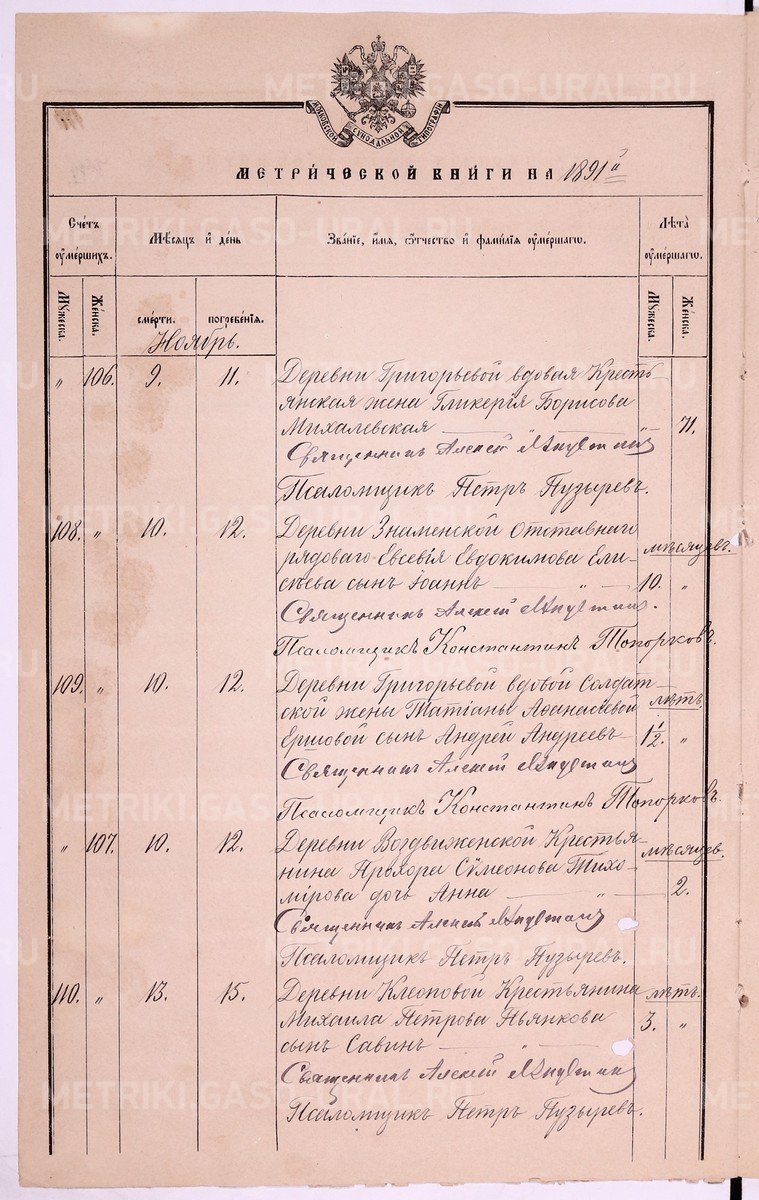 МОСКОВСКОЙ СѴНОДАЛЬНОЙ ТИПОГРАФІИ
МЕТРИ́ЧЕСКОЙ КНИ́ГИ НА 1891й
Сче́тъ ᲂу҆ме́ршихъ.
Мѣ́сяцъ и҆ де́нь
Зва́ніе, и҆́мя, ѻ҆́тчество и҆ фами́лія ᲂу҆ме́ршагѡ.
Лѣ́та ᲂу҆ме́ршагѡ.
Мꙋ́жеска.
Же́нска.
сме́рти.
погребе́нія.
Мꙋ́жеска.
Же́нска.
Ноябрь.
„ 106. 9. 11. Деревни Григорьевой вдовая Кресть
янская жена Гликерія Борисова
Михалевская — „ — „ 71.
Священникъ Алексій
Псаломщикъ Петръ Пузыревъ.
108. „ 10. 12. Деревни Знаменской Отставнаго
рядоваго Евсевія Евдокимова Ели- мѣсяцевъ.
сѣева сынъ Іоаннъ — „ — 10. „
Священникъ Алексій
Псаломщикъ Константинъ Топорковъ.
109. „ 10. 12. Деревни Григорьевой вдовой Солдат-
ской жены Татіаны Аѳанасіевой лѣтъ
Ершовой сынъ Андрей Андреевъ 1½. „
Священникъ Алексій
Псаломщикъ Константинъ Топорковъ.
„ 107. 10. 12. Деревни Воздвиженской Крестья-
нина Прохора Сѵмеонова Тихо- мѣсяцев.
мірова дочь Анна — „ — 2.
Священникъ Алексій
Псаломщикъ Петръ Пузыревъ.
110. „ 13. 15. Деревни Клеоповой Крестьянина лѣтъ.
Михаила Петрова Пьянкова 3. „
сынъ Савинъ — „ —
Священникъ Алексій
Псаломщикъ Петръ Пузыревъ.
METRIKI.GASO-URAL.RU